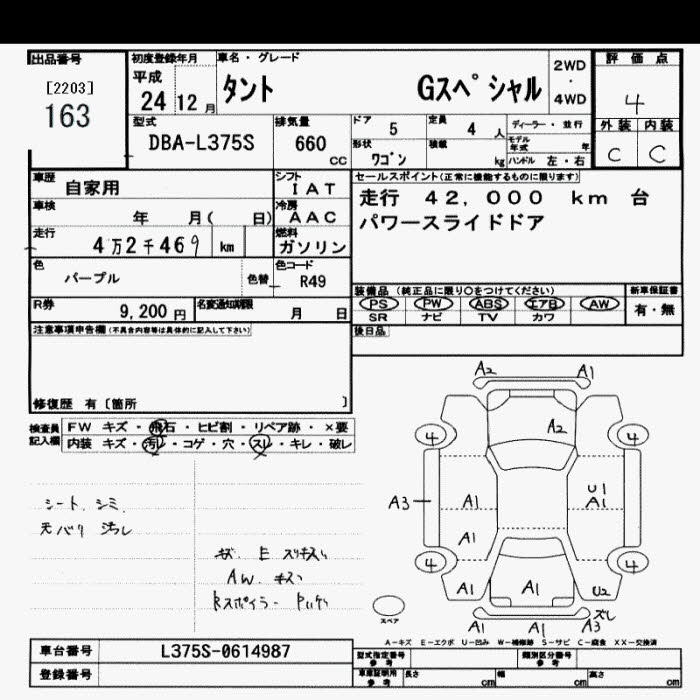 出品番号
[2203]
163
初度登録年月
平成
24 12 月
車名・グレード
タント Gスペシャル
2WD
・
4WD
評価点
4
外装 内装
C C
型式
DBA-L375S
排気量
660
CC
ドア
5
定員
4 人
ディーラー・並行
形状
ワゴン
積載
kg
モデル年式 年
ハンドル 左・右
車歴
自家用
シフト
I A T
車検
年 月( 日)
冷房
A A C
走行
4万2千469 km
燃料
ガソリン
色
パープル
色替
色コード
R49
セールスポイント(正常に機能するものに限ります)
走行 42,000 km 台
パワースライドドア
R券
9,200 円
名変通知期限
月 日
装備品(純正品に限り○をつけてください)
PS PW ABS エアB AW
SR ナビ TV カワ
新車保証書
有・無
注意事項申告欄(不具合内容等は具体的に記入して下さい)
後日品
修復歴 有[箇所 ]
検査員記入欄
FW キズ・飛石・ヒビ割・リペア跡・×要
内装 キズ・汚レ・コゲ・穴・スレ・キレ・破レ
シート、シミ
天バリ 汚レ
AW. キズ
A2 A1
A2
4 4
A3 A1 U1
A1
A1
4 4
A1 A1 U2
ズレ
A1 A1 A3
スペア
A-キズ E-エクボ U-凹み W-補修跡 S-サビ C-腐食 XX-交換済
車台番号
L375S-0614987
登録番号
型式指定番号
参考
類別区分番号
参考
車庫証明用
参考
長さ cm
幅 cm
高さ cm